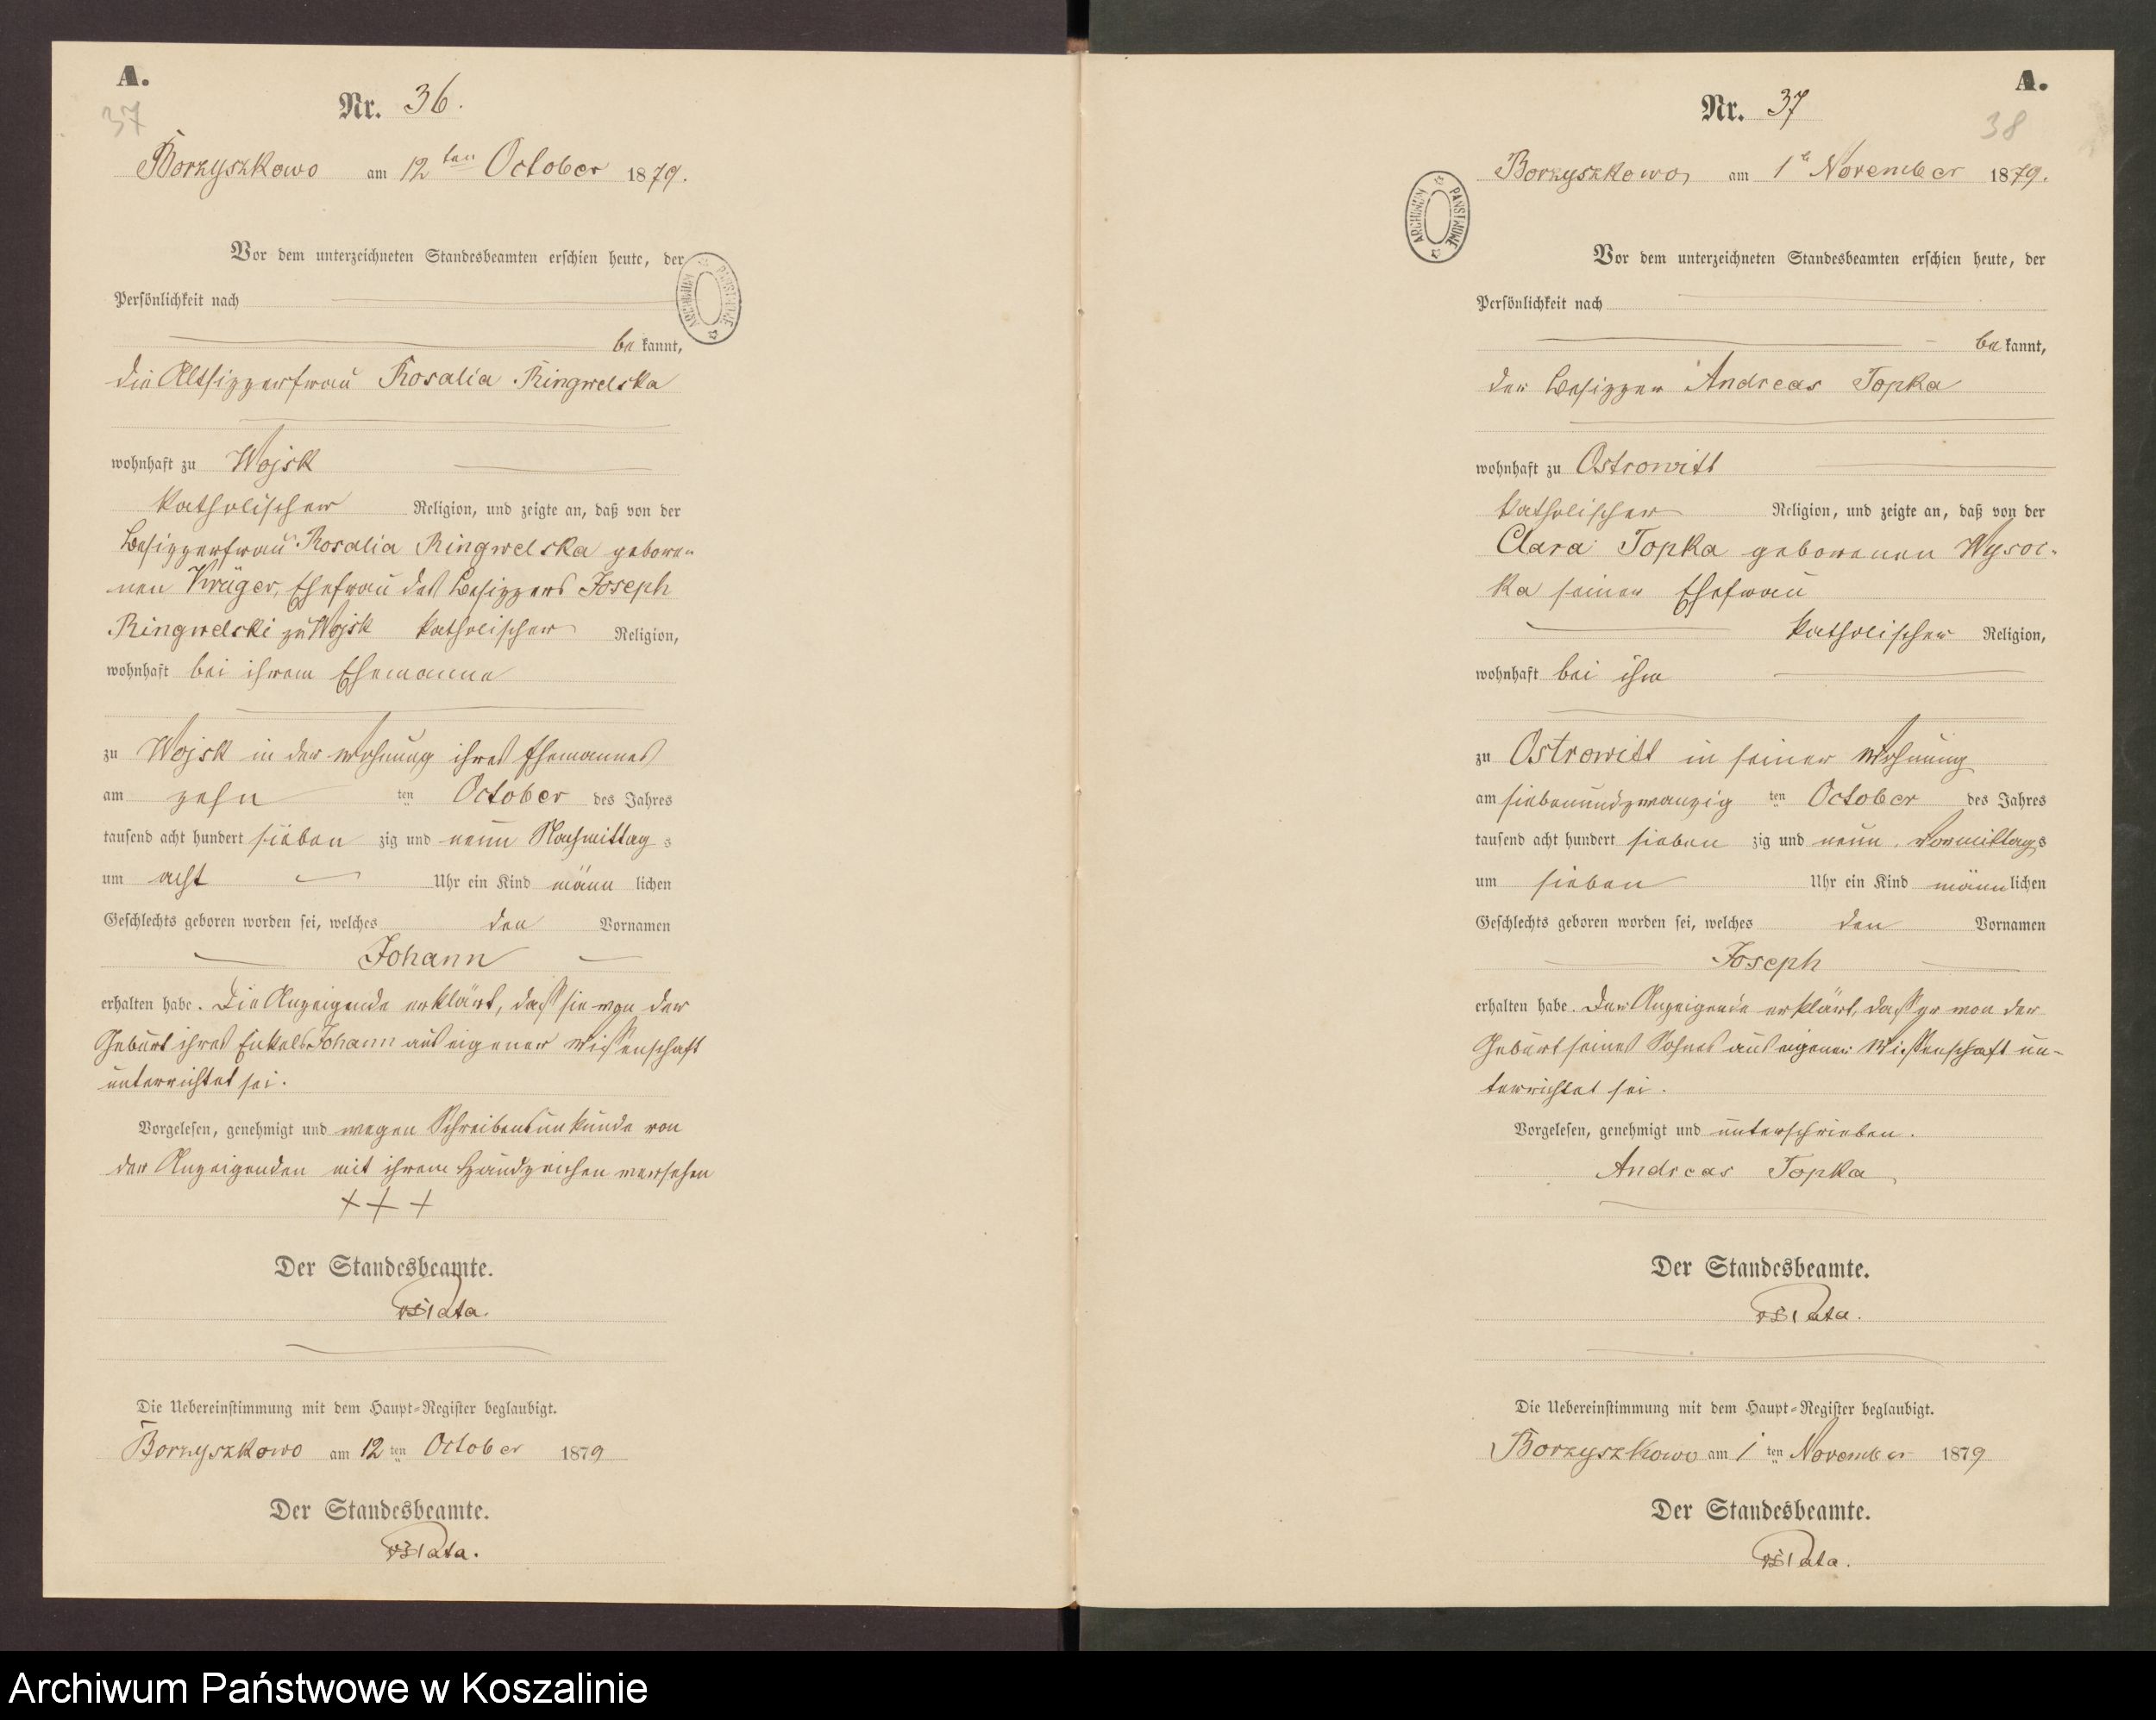 A.
37
Nr. 36.
Borzyszkowo am 12ten October 1879.
Vor dem unterzeichneten Standesbeamten erschien heute, der
Persönlichkeit nach
bekannt,
die Altsitzerfrau Rosalia Ringwelska
wohnhaft zu Wojsk
katholischer Religion, und zeigte an, daß von der
Besitzerfrau Rosalia Ringwelska gebore-
nen Krüger, Ehefrau des Besitzers Joseph
Ringwelski zu Wojsk katholischer Religion,
wohnhaft bei ihrem Ehemanne
zu Wojsk in der Wohnung ihres Ehemannes
am zehn ten October des Jahres
tausend acht hundert sieben zig und neun Nachmittag s
um acht Uhr ein Kind männ lichen
Geschlechts geboren worden sei, welches den Vornamen
Johann
erhalten habe. Die Anzeigende erklärt, dass sie von der
Geburt ihres Enkels Johann aus eigener Wissenschaft
unterrichtet sei.
Vorgelesen, genehmigt und wegen Schreibensunkunde von
der Anzeigenden mit ihrem Handzeichen versehen
+++
Der Standesbeamte.
Pata.
Die Uebereinstimmung mit dem Haupt-Register beglaubigt.
Borzyszkowo am 12ten October 1879
Der Standesbeamte.
Pata.
ARCHIWUM PAŃSTWOWE
A.
38
Nr. 37
Borzyszkowo, am 1t November 1879.
Vor dem unterzeichneten Standesbeamten erschien heute, der
Persönlichkeit nach
bekannt,
der Besitzer Andreas Topka
wohnhaft zu Ostrowitt
katholischer Religion, und zeigte an, daß von der
Clara Topka geborenen Wysoc-
ka seiner Ehefrau
katholischer Religion,
wohnhaft bei ihm
zu Ostrowitt in seiner Wohnung
am siebenundzwanzig ten October des Jahres
tausend acht hundert sieben zig und neun Vormittags
um sieben Uhr ein Kind männlichen
Geschlechts geboren worden sei, welches den Vornamen
Joseph
erhalten habe. Der Anzeigende erklärt, dass er von der
Geburt seines Sohnes aus eigener Wissenschaft un-
terrichtet sei.
Vorgelesen, genehmigt und unterschrieben.
Andreas Topka
Der Standesbeamte.
Pata.
Die Uebereinstimmung mit dem Haupt-Register beglaubigt.
Borzyszkowo am 1 ten November 1879
Der Standesbeamte.
Pata.
ARCHIWUM PAŃSTWOWE
Archiwum Państwowe w Koszalinie